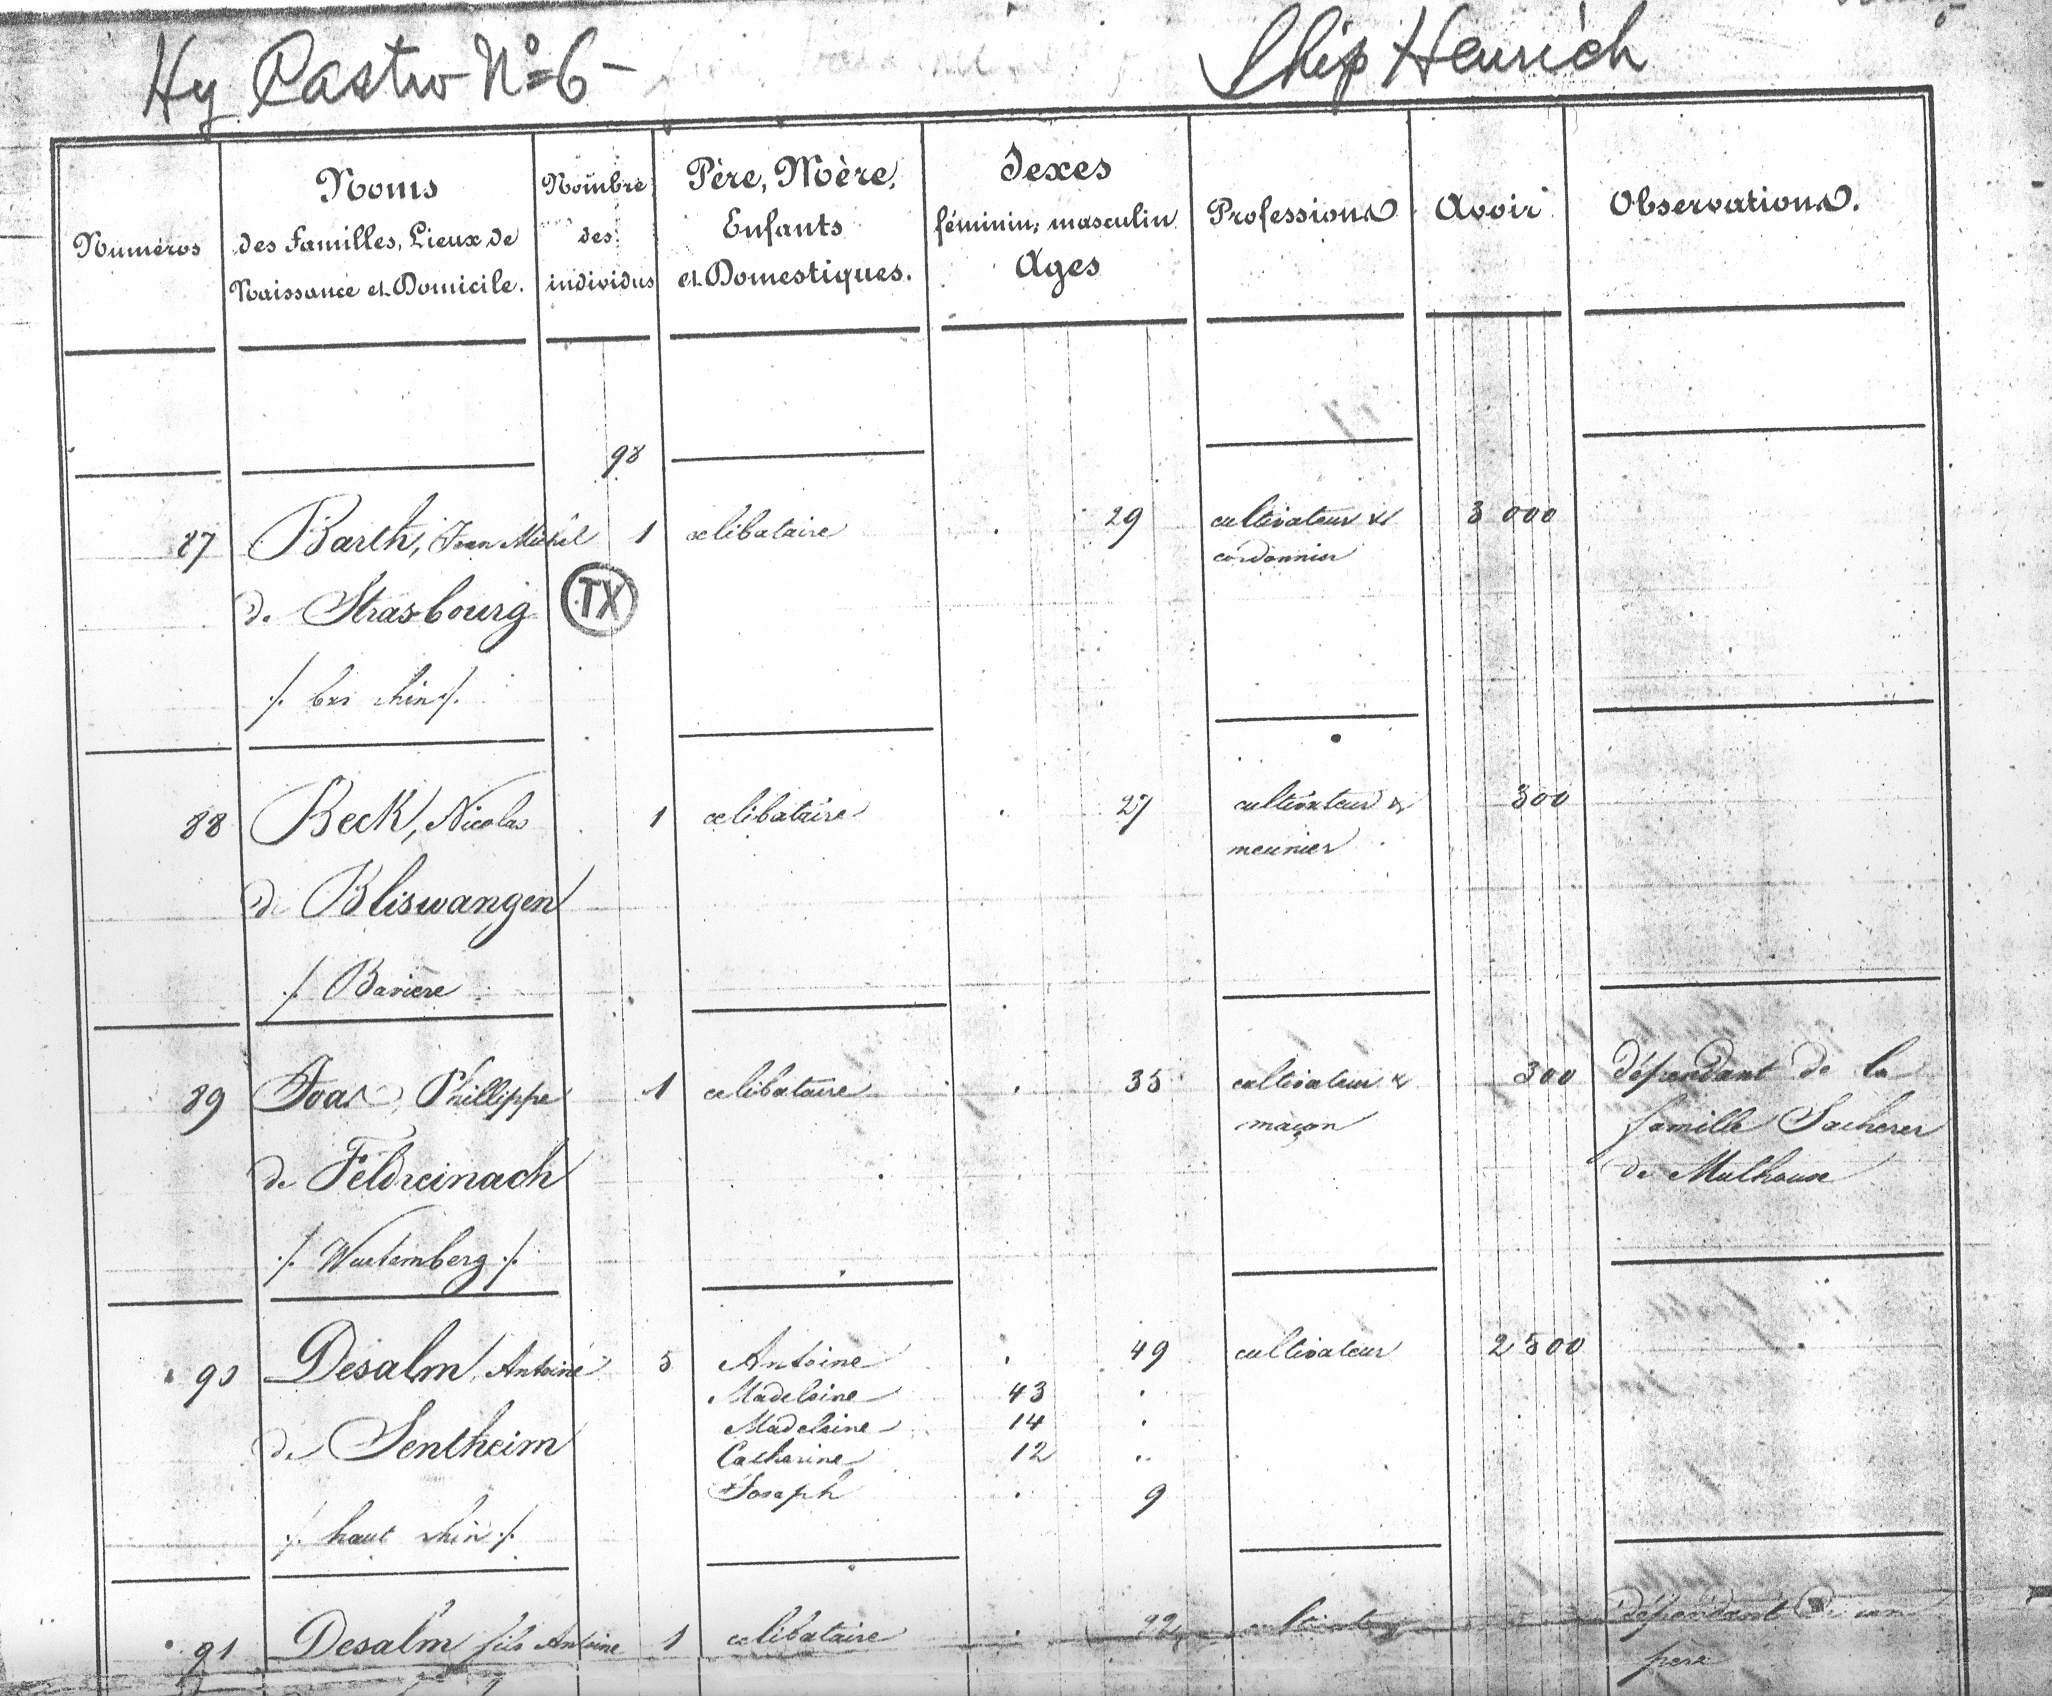 Hy Castro Nº 6 -
Ship Henrich
Numéros
Noms
des Familles, Lieux de
Naissance et Domicile.
Nombre
des
individus
Père, Mère,
Enfants
et Domestiques.
Sexes
féminin; masculin
Ages
Professions
Avoir
Observations.
98
87 Barth, Jean Michel 1 celibataire . 29 cultivateur & 3 000
cordonnier
de Strasbourg TX
/. bas rhin /.
88 Beck, Nicolas 1 celibataire . 27 cultivateur & 300
meunier
de Bliswangen
/. Bavière
89 Phillippe 1 celibataire . 35 cultivateur & 300 dépendant de la
maçon famille Sacherer
de Feldreinach de Mulhouse
/. Wurtemberg /.
90 Desalm, Antoine 5 Antoine . 49 cultivateur 2 500
Madeleine 43 .
Madeleine 14 .
de Sentheim Catherine 12 ..
Joseph . 9
/. haut rhin /.
91 Desalm fils Antoine 1 celibataire . 22 dépendant de
père